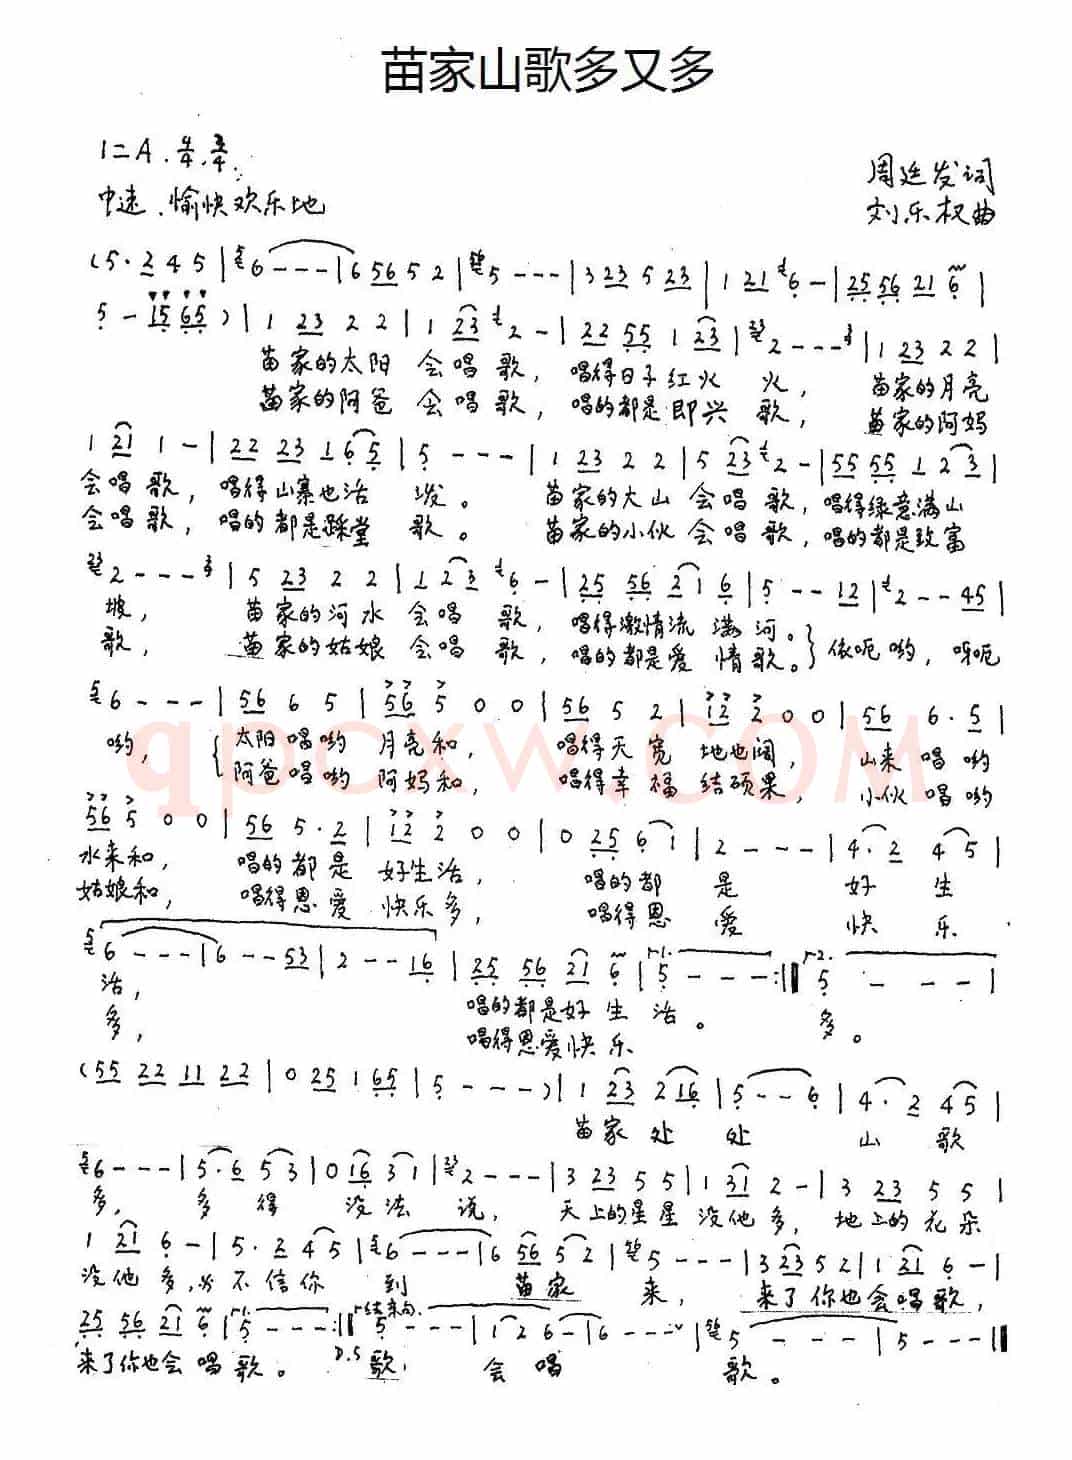 苗家山歌多又多
1=A 4/4 3/4
周廷发词
中速、愉快欢乐地
刘乐权曲
(5·2 4 5 | 6 - - - | 6 56 5 2 | 5 - - - | 3 23 5 23 | 1 21 6 - | 25 56 21 6 |
5 - 15 65 ) | 1 23 2 2 | 1 23 2 - | 22 55 1 23 | 2 - - - | 1 23 2 2 |
苗家的太阳 会唱歌, 唱得日子红火 火, 苗家的月亮
苗家的阿爸 会唱歌, 唱的都是即兴 歌, 苗家的阿妈
1 21 1 - | 22 23 1 65 | 5 - - - | 1 23 2 2 | 5 23 2 - | 55 55 1 23 |
会唱歌, 唱得山寨也活 泼。 苗家的大山 会唱歌, 唱得绿意满山
会唱歌, 唱的都是踩堂 歌。 苗家的小伙 会唱歌, 唱的都是致富
2 - - - | 5 23 2 2 | 1 23 6 - | 25 56 21 6 | 5 - - 12 | 2 - - 45 |
坡, 苗家的河水 会唱歌, 唱得激情流 满河。 依呃哟, 呀呃
歌, 苗家的姑娘 会唱歌, 唱的都是爱 情歌。
6 - - - | 56 6 5 | 56 5 0 0 | 56 5 2 | 12 2 0 0 | 56 6·5 |
哟, 太阳唱哟 月亮和, 唱得天宽 地也阔, 山来唱哟
阿爸唱哟 阿妈和, 唱得幸福 结硕果, 小伙唱哟
56 5 0 0 | 56 5·2 | 12 2 0 0 | 0 25 6 1 | 2 - - - | 4·2 4 5 |
水来和, 唱的都是 好生活, 唱的都 是 好 生
姑娘和, 唱得恩爱 快乐多, 唱得恩 爱 快 乐
6 - - - | 6 - - 53 | 2 - - 16 | 25 56 21 6 | 1. 5 - - - :‖ 2. 5 - - - |
活, 唱的都是好生 活。 多。
多, 唱得恩爱快乐
(55 22 11 22 | 0 25 1 65 | 5 - - - ) | 1 23 2 16 | 5 - - 6 | 4·2 4 5 |
苗家处 处 山 歌
6 - - - | 5·6 5 3 | 0 16 3 1 | 2 - - - | 3 23 5 5 | 1 31 2 - | 3 23 5 5 |
多, 多 得 没法 说, 天上的星星 没他多, 地上的花朵
1 21 6 - | 5·2 4 5 | 6 - - - | 6 56 5 2 | 5 - - - | 3 23 5 2 | 1 21 6 - |
没他多, 不信你 到 苗家 来, 来了你也会唱歌,
25 56 21 6 | 1. 5 - - - :‖ 结束句. 5 - - - | 1 2 6 - | 6 - - - | 5 - - - | 5 - - - ‖
D.S
来了你也会 唱 歌。 歌, 会 唱 歌。
qpcxw.com